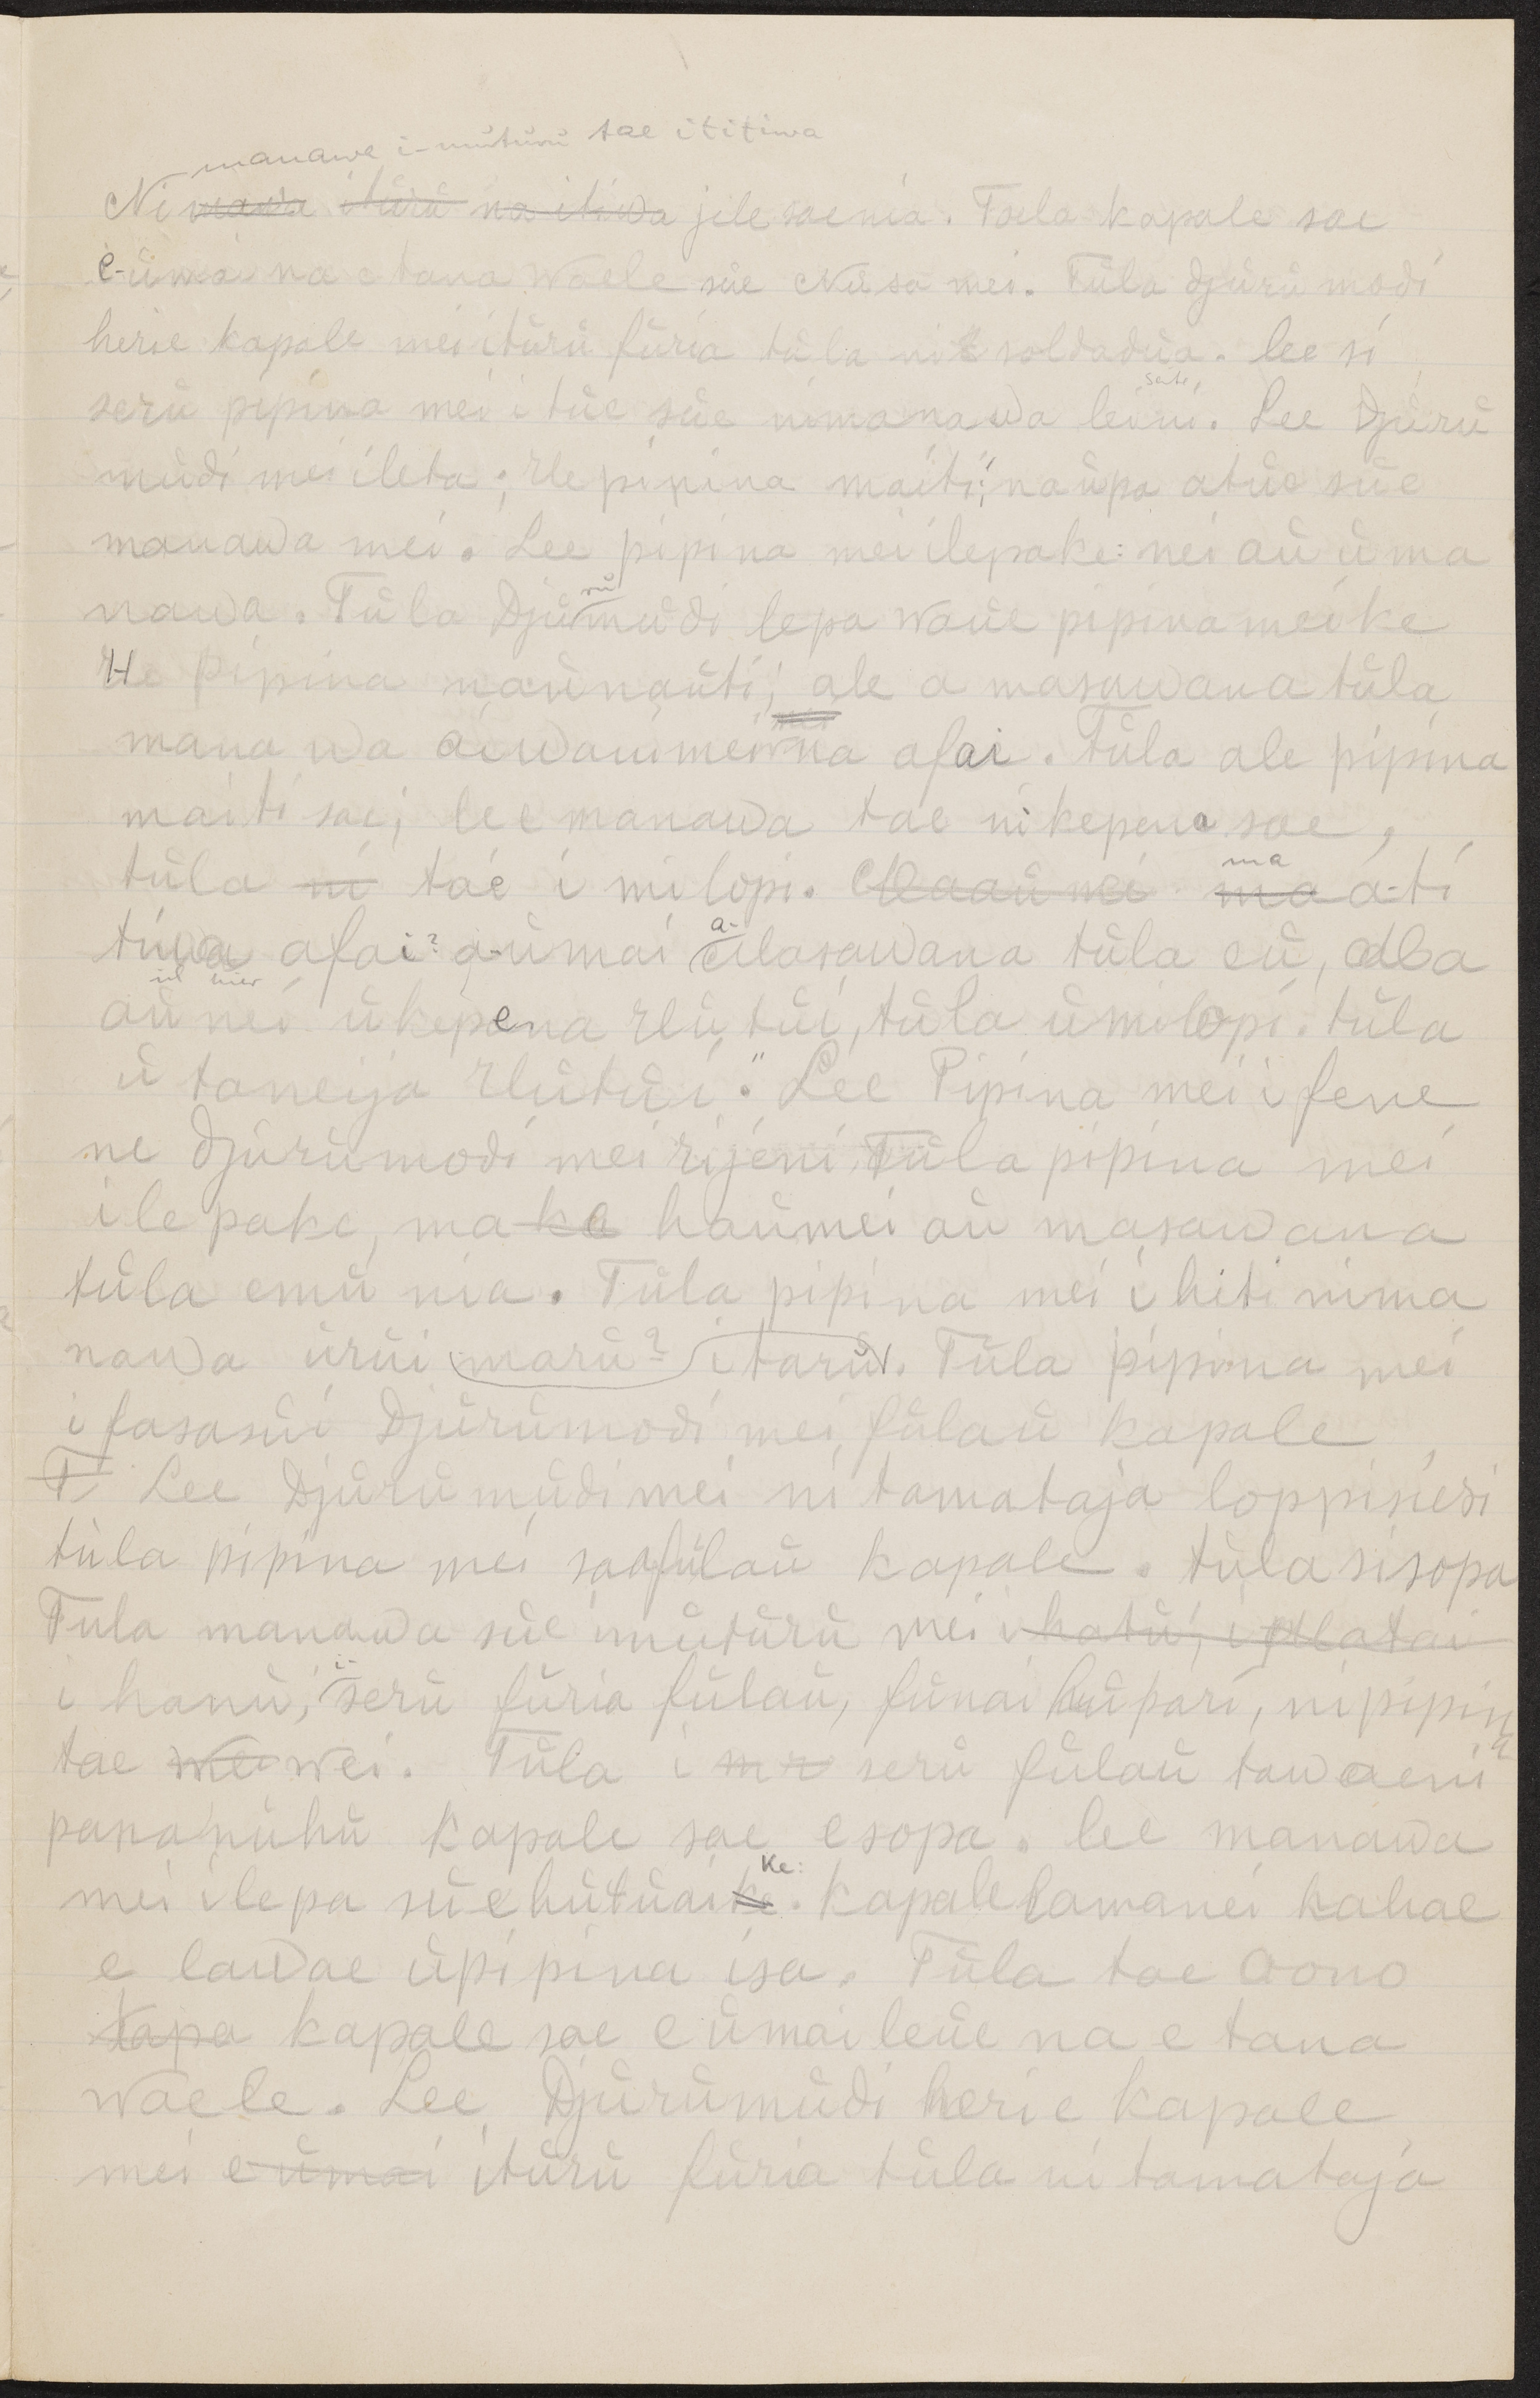 manawe i-mütürü tae ititiwa
Ni mawa itürü na itiwa jile saenia. Tüla kapale sae
e-ümai na e tana waele süe Nüsa mei. Tüla djürü modi
herie kapale mei itürü füria tüla ni soldadüa. lee si
serü pipina mei i tüe süe nimanawa leini. Lee Djürü
müdi mei ileta; He pipina maiti; naüpa atüe süe
manawa mei. Lee pipina mei ilepake: nei aü üma
nawa. Tüla Djürümüdi lepa waüe pipina mei ke
He pipina naünaüti; ale a masawana tüla
mana wa mei afai. Tüla ale pipina
maiti sae; lee manawa tae nikepena sae,
tüla ni tae i milopi. ma ma a-ti
tüwa afai? a-ümai a- tüla eü,
aü nei ükepena rlütüi, tüla ümilopi. tüla
ü taneija rlütüi." Lee Pipina mei i fene
ne djürümodi mei rijeni. Tüla pipina mei
ile pake, ma ka haümei aü masawana
tüla emü nia. Tüla pipina mei i hiti nima
nawa ürüi marü? itarü. Tüla pipina mei
i fasasüi Djürümodi mei fülaü kapale
T Lee Djürümüdi mei ni tamataja loppisiesi
tüla pipina mei saafülaü kapale. tüla sisopa
Tula manawa süe imütürü mei i hatü, i
i hanü, i- serü füria fülaü, fünai hüpari, ni pipina
tae wei wei. Tüla i serü fülaü tawaeni
pananühü kapale sae esopa. lee manawa
mei ilepa süe hütüai ke ke: kapale lamanei hahae
e lawae üpipina isa. Tüla tae oono
tapa kapale sae eümai leüe na e tana
waele. Lee Djürümüdi heri e kapale
mei e ümai itürü füria tüla ni tamataja